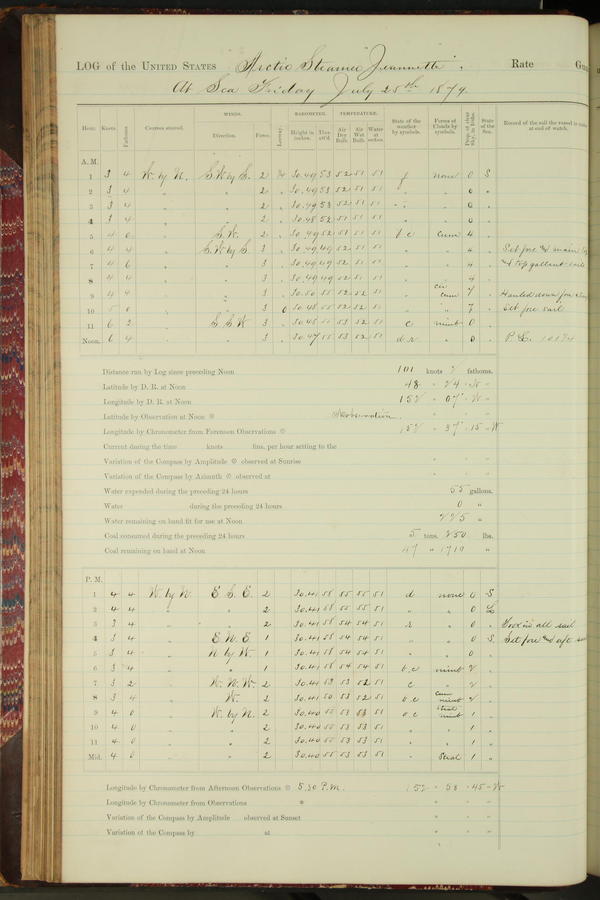 LOG of the UNITED STATES Arctic Steamer "Jeannette". Rate
At Sea Friday July 25th 1879.
Hour. Knots. Fathoms. Courses steered. WINDS. Direction. Force. Leeway. BAROMETER. Height in inches. Ther. att'd. TEMPERATURE. Air Dry Bulb. Air Wet Bulb. Water at surface. State of the weather by symbols. Forms of Clouds by symbols. Prop. of clear Sky, in 10ths. State of the Sea. Record of the sail the vessel is under at end of watch.
A. M.
1 3 4 W. by N. S.W by S. 2 30.49 53 52 51 51 f none 0 S
2 3 4 " " 2 " 30.49 53 52 51 51 " " 0 "
3 3 4 " " 2 " 30.49 53 52 51 51 " " 0 "
4 3 4 " " 2 " 30.48 52 51 51 51 " " 0 "
5 4 0 " S.W. 2 " 30.49 52 51 51 51 b c cum 4 "
6 4 4 " S.W. by S. 3 " 30.49 49 52 51 51 " " 4 " Set fore & main
7 4 6 " " 3 " 30.49 49 52 51 51 " " 4 " & top gallant sail
8 4 4 " " 3 " 30.49 49 52 51 51 " " 4 "
9 4 4 " " 3 " 30.50 55 52 52 51 " cir cum 7 " Hauled down fore
10 5 0 " " 3 0 30.48 55 52 52 51 " " 7 " Set fore sail
11 6 2 " S.S.W 3 " 30.48 55 53 52 51 c nimb 0 "
Noon. 6 4 " " 3 " 30.47 55 53 52 51 " 0 "
Distance run by Log since preceding Noon 101 knots 2 fathoms.
Latitude by D. R. at Noon 48 " 24 " N "
Longitude by D. R. at Noon 152 " 07 " W "
Latitude by Observation at Noon No observation.
Longitude by Chronometer from Forenoon Observations 152 " 37 " 15 " W
Current during the time knots fms. per hour setting to the
Variation of the Compass by Amplitude observed at Sunrise
Variation of the Compass by Azimuth observed at
Water expended during the preceding 24 hours 55 gallons.
Water during the preceding 24 hours 0 "
Water remaining on hand fit for use at Noon 225 "
Coal consumed during the preceding 24 hours 5 tons. 250 lbs.
Coal remaining on hand at Noon 47 " 1710 "
P. M.
1 4 4 W. by N. E S. E. 2 30.41 58 55 55 51 d none 0 S
2 4 4 " " 2 30.41 58 55 55 51 " " 0 L
3 3 4 " " 2 30.41 58 54 54 51 " 0 " Took in all sail
4 3 4 " E N E 1 30.41 58 54 54 51 " " 0 S. Set fore & aft
5 3 4 " N by W. 1 30.41 58 54 54 51 " " 0
6 3 4 " " 1 30.41 58 54 54 51 b.c nimb 2 "
7 3 2 " W. N. W. 2 30.41 53 53 52 51 c " 2 "
8 3 4 " W. 2 30.41 50 53 52 51 o.c cum nimb 2 "
9 4 0 " W. by N. 2 30.40 55 53 53 51 o.c Strat nimb 1 "
10 4 0 " " 2 30.40 55 53 53 51 " " 1 "
11 4 0 " " 2 30.40 55 53 53 51 " " 1 "
Mid. 4 0 " " 2 30.40 55 53 53 51 " Strat 1 "
Longitude by Chronometer from Afternoon Observations 5.30 P.M. 152 " 58 " 45 " W
Longitude by Chronometer from Observations
Variation of the Compass by Amplitude observed at Sunset
Variation of the Compass by at